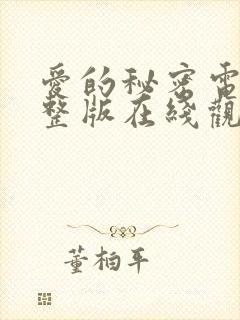 愛的秘密電
整版在綫觀
董柏平